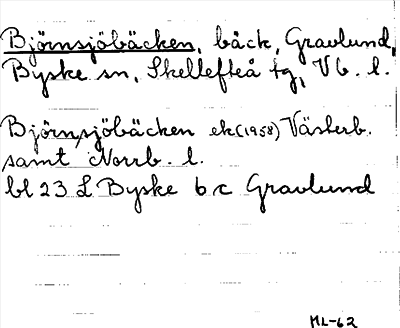 Björnsjöbäcken, bäck, Gravlund,
Byske sn, Skellefteå tg, Vb. l.
Björnsjöbäcken ek(1958) Västerb.
samt Norrb. l.
bl 23 L Byske b c Gravlund
ML-62